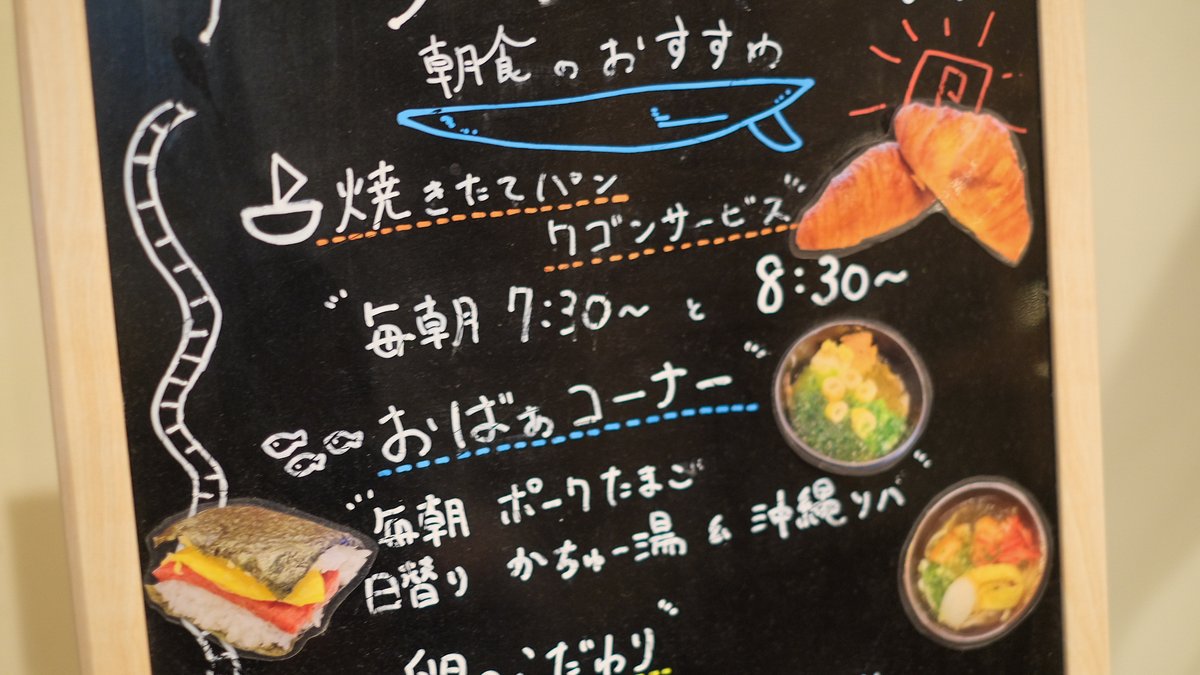 朝食のおすすめ
焼きたてパン
ワゴンサービス
毎朝 7:30〜 と 8:30〜
おばぁコーナー
毎朝 ポークたまご
日替り かちゅー湯 & 沖縄ソバ
卵のこだわり